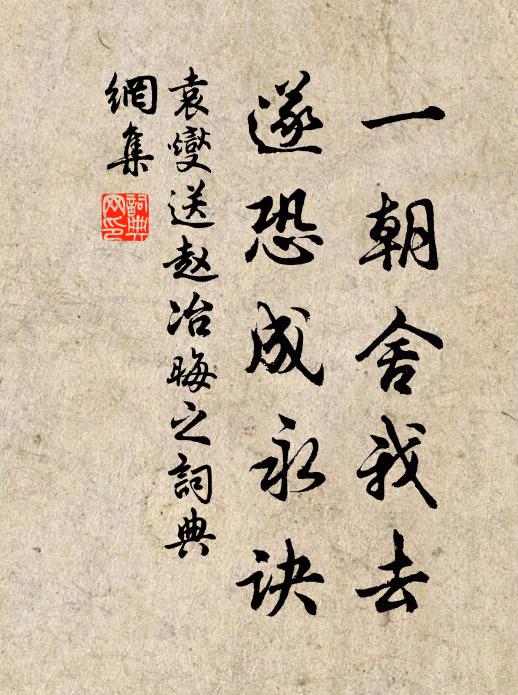 一朝舍我去
遂恐成永诀
袁燮送赵冶晦之詞典
網集
詞典
网印